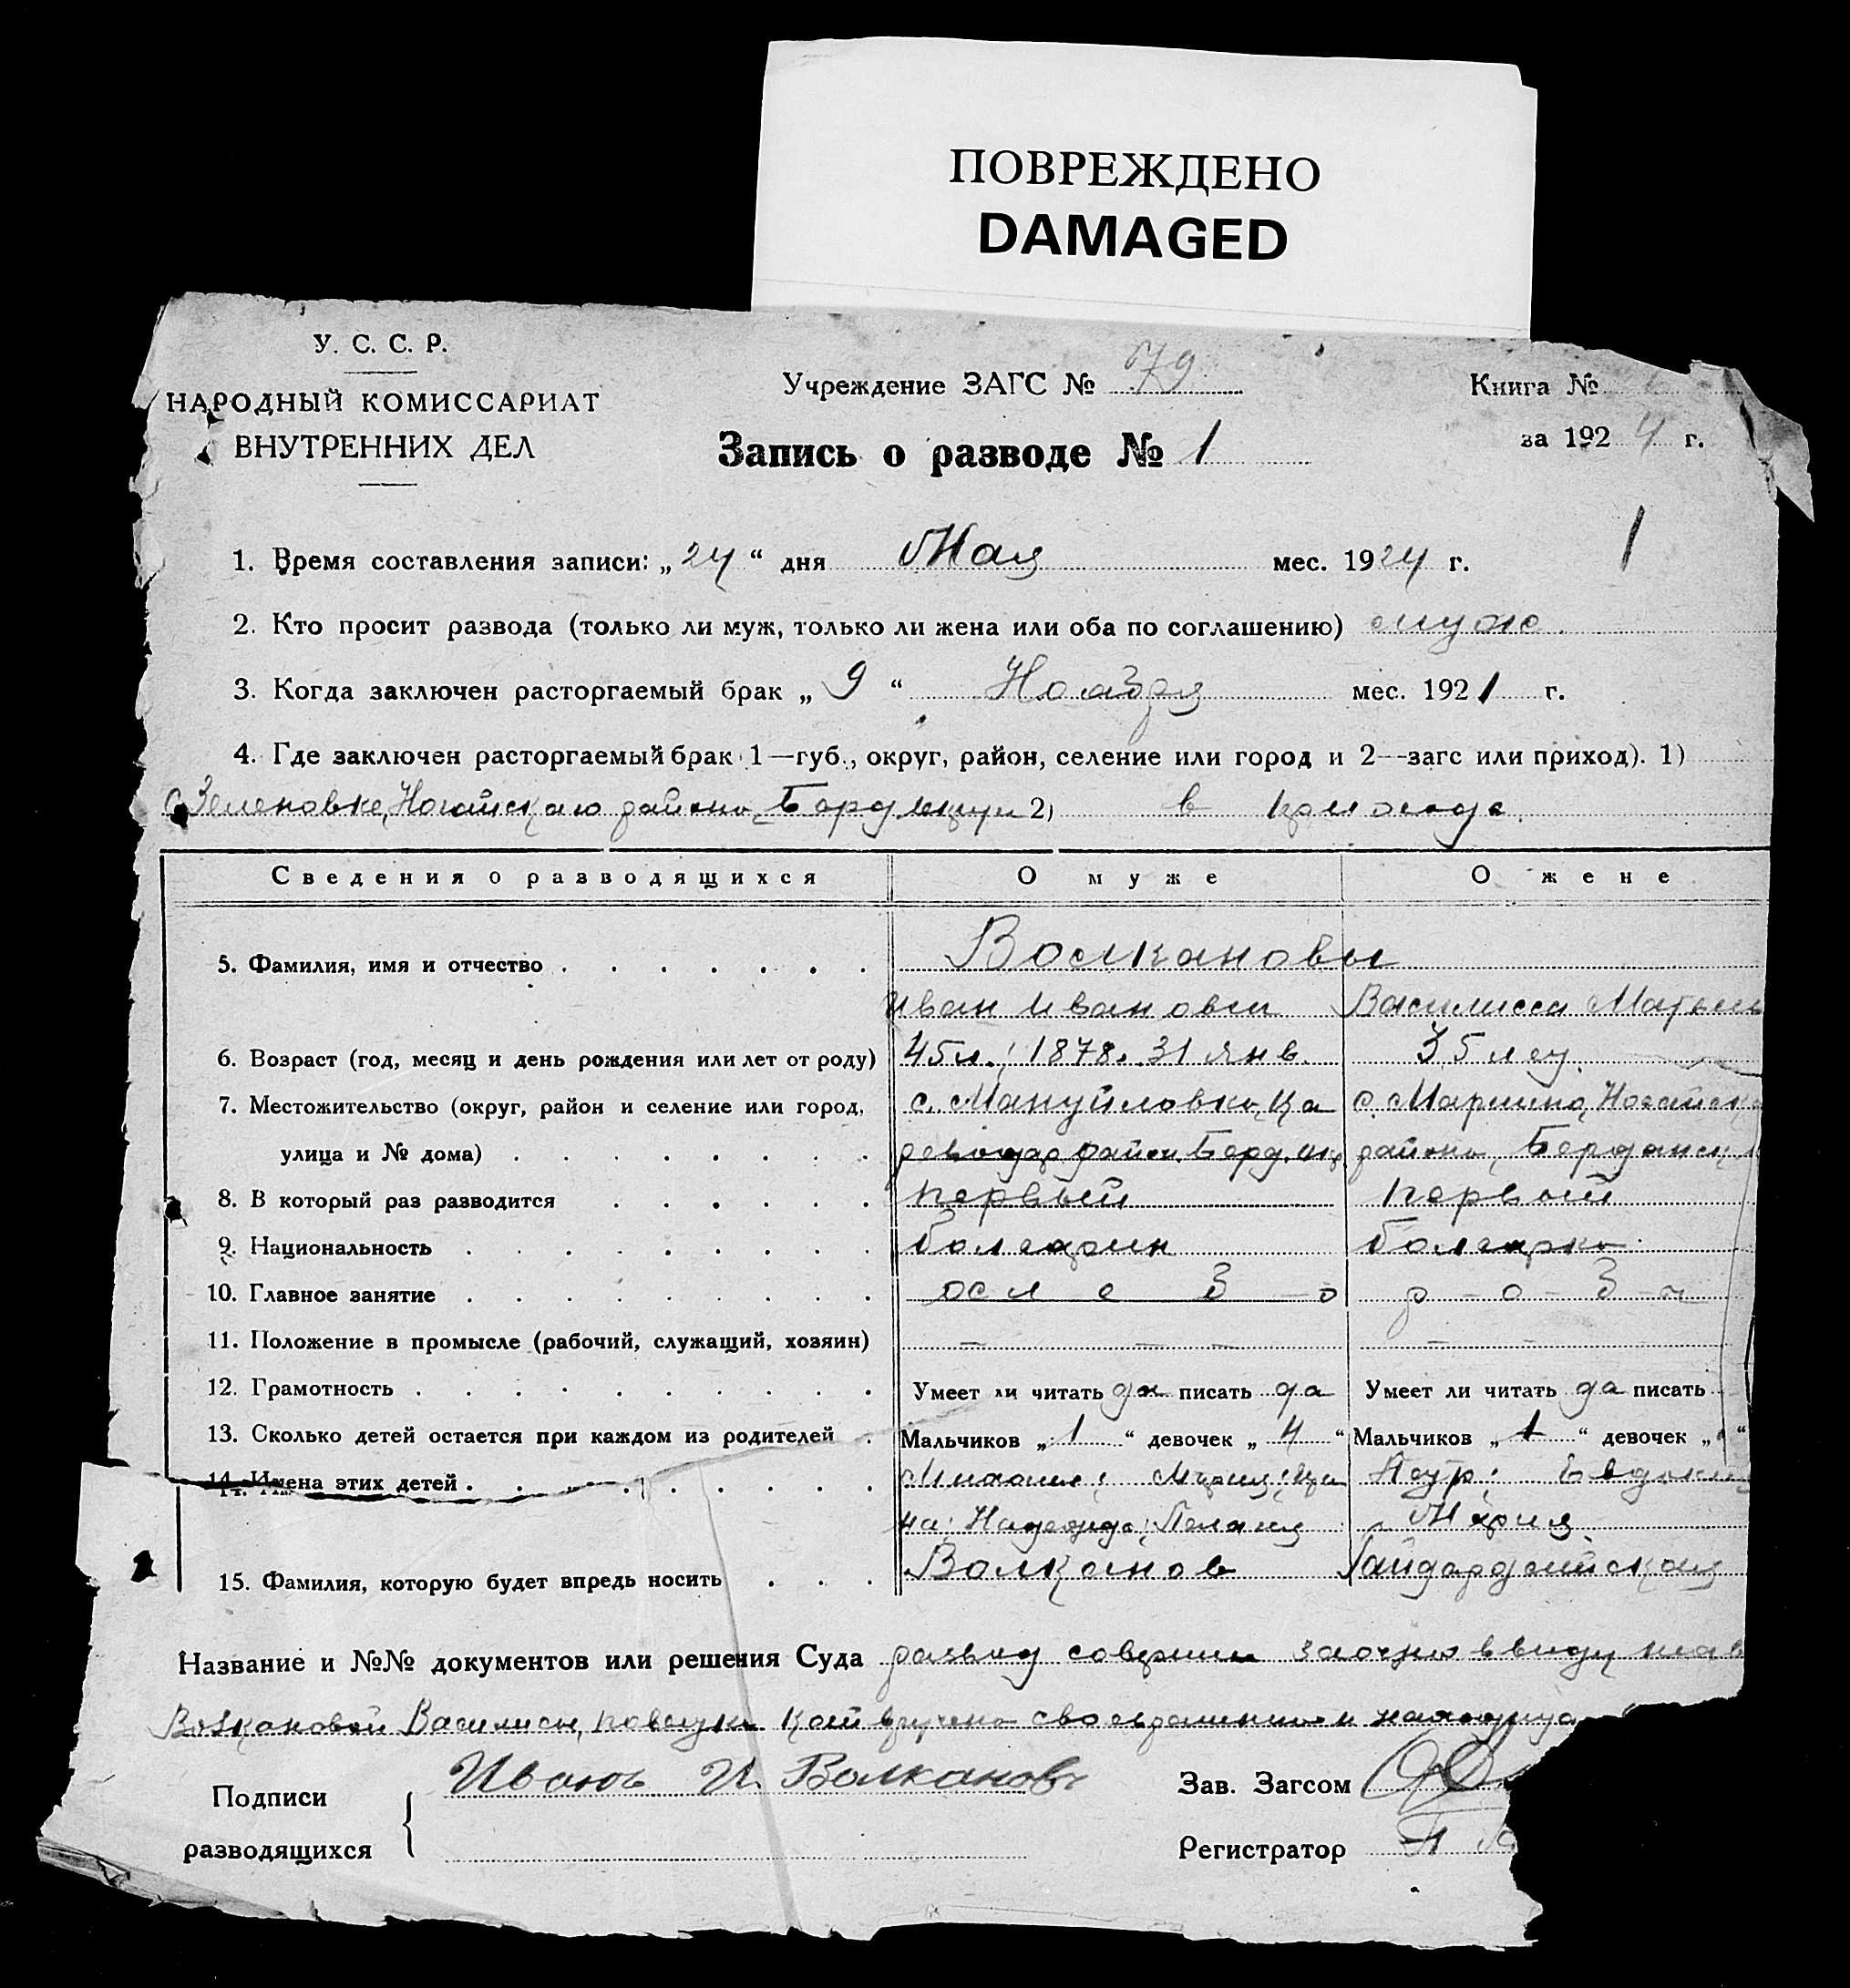 ПОВРЕЖДЕНО
DAMAGED
У. С. С. Р.
НАРОДНЫЙ КОМИССАРИАТ
ВНУТРЕННИХ ДЕЛ
Учреждение ЗАГС № 79
Книга №
за 1924 г.
Запись о разводе № 1
1
1. Время составления записи: „24“ дня Мая мес. 1924 г.
2. Кто просит развода (только ли муж, только ли жена или оба по соглашению) муж.
3. Когда заключен расторгаемый брак „9“ Ноября мес. 1921 г.
4. Где заключен расторгаемый брак 1—губ., округ, район, селение или город и 2—загс или приход). 1)
с. Зеленовке, Ногайского района, Берд. 2) в приходе.
Сведения о разводящихся О муже О жене
5. Фамилия, имя и отчество Волкановы
Иван Иванович Василисса
6. Возраст (год, месяц и день рождения или лет от роду) 45 л.; 1878. 31 янв. 35 лет.
7. Местожительство (округ, район и селение или город, с. Мануйловка, Ца с. Марьино, Ногайск
улица и № дома) район. Берд. района, Бердянск
8. В который раз разводится первый первый
9. Национальность болгарин болгарка
10. Главное занятие
11. Положение в промысле (рабочий, служащий, хозяин) — — — — — —
12. Грамотность Умеет ли читать да писать да Умеет ли читать да писать
13. Сколько детей остается при каждом из родителей Мальчиков „1“ девочек „4“ Мальчиков „1“ девочек „ “
14. Имена этих детей Михаил; Мария; Ири Петр; Евдоки
на; Надежда; Пелагия Мария.
15. Фамилия, которую будет впредь носить Волканов Гайдаржийская
Название и №№ документов или решения Суда развод совершен заочно ввиду
Волкановой Василисы, повестка кой вручена своевременно и
Подписи
разводящихся
Иванъ И. Волкановъ
Зав. Загсом
Регистратор